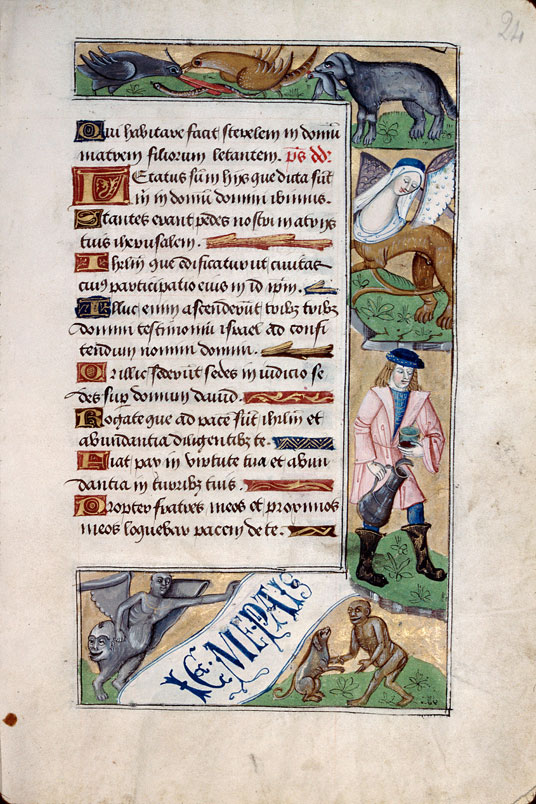 24
Qui habitare facit sterelem in domū
matrem filiorum letantem. ps̄ dd.
Letatus sum hiis que dicta sūt
m̄ in domū domini ibimus.
Stantes erant pedes nostri in atriis
tuis iherusalem.
Ihrlm̄ que edificatur ut ciuitas
cuius participatio eius in id ip̄m.
Illuc enim ascenderūt tribꝫ tribꝫ
domini testimoniū israel ad confi
tendum nomini domini.
Quia illuc sederūt sedes in iudicio se
des sup̄ domum dauid.
Rogate que ad pacē sūt ihrlm̄ et
abundantia diligentibꝫ te.
Fiat pax in virtute tua et abun
dantia in turribꝫ tuis.
Propter fratres meos et proximos
meos loquebar pacem de te.